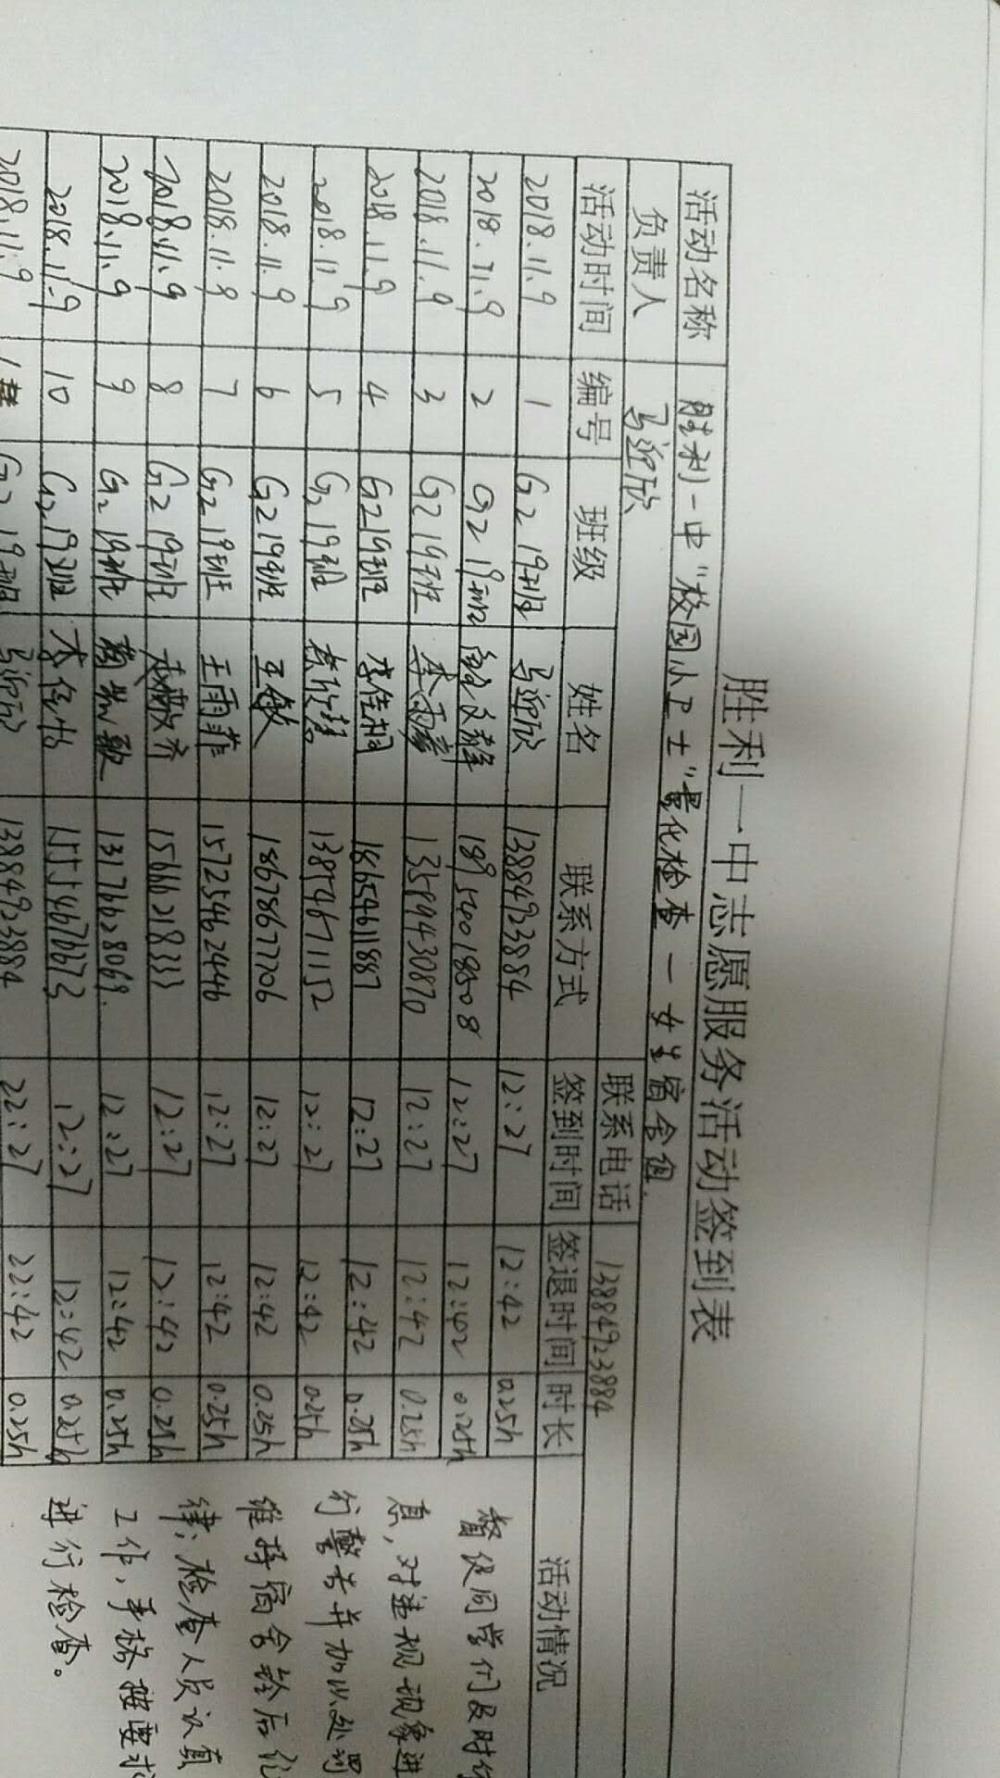 胜利一中志愿服务活动签到表
活动名称 胜利一中"校园小卫士"量化检查—女生宿舍组
负责人 马迎欣 联系电话 13884923884
活动时间 编号 班级 姓名 联系方式 签到时间 签退时间 时长 活动情况
2018.11.9 1 G2 19班 马迎欣 13884923884 12:27 12:42 0.25h
2018.11.9 2 G2 19班 189540018508 12:27 12:42 0.25h
2018.11.9 3 G2 19班 13589430870 12:27 12:42 0.25h
2018.11.9 4 G219班 李佳桐 18654611887 12:27 12:42 0.25h
2018.11.9 5 G2 19班 13854671152 12:27 12:42 0.25h
2018.11.9 6 G219班 王敏 18678677206 12:27 12:42 0.25h
2018.11.9 7 G219班 王雨菲 15725462446 12:27 12:42 0.25h
2018.11.9 8 G2 19班 15666218333 12:27 12:42 0.25h
2018.11.9 9 G2 19班 13176628069. 12:27 12:42 0.25h
2018.11.9 10 G2 19班 15554676673 12:27 12:42 0.25h
2018.11.9 1 G2 19班 马迎欣 13884923884 22:27 22:42 0.25h
督促同学们及时休
息,对违规现象进
行警告并加以处罚
维持宿舍铃后纪
律;检查人员认真
工作,严格按要求
进行检查。